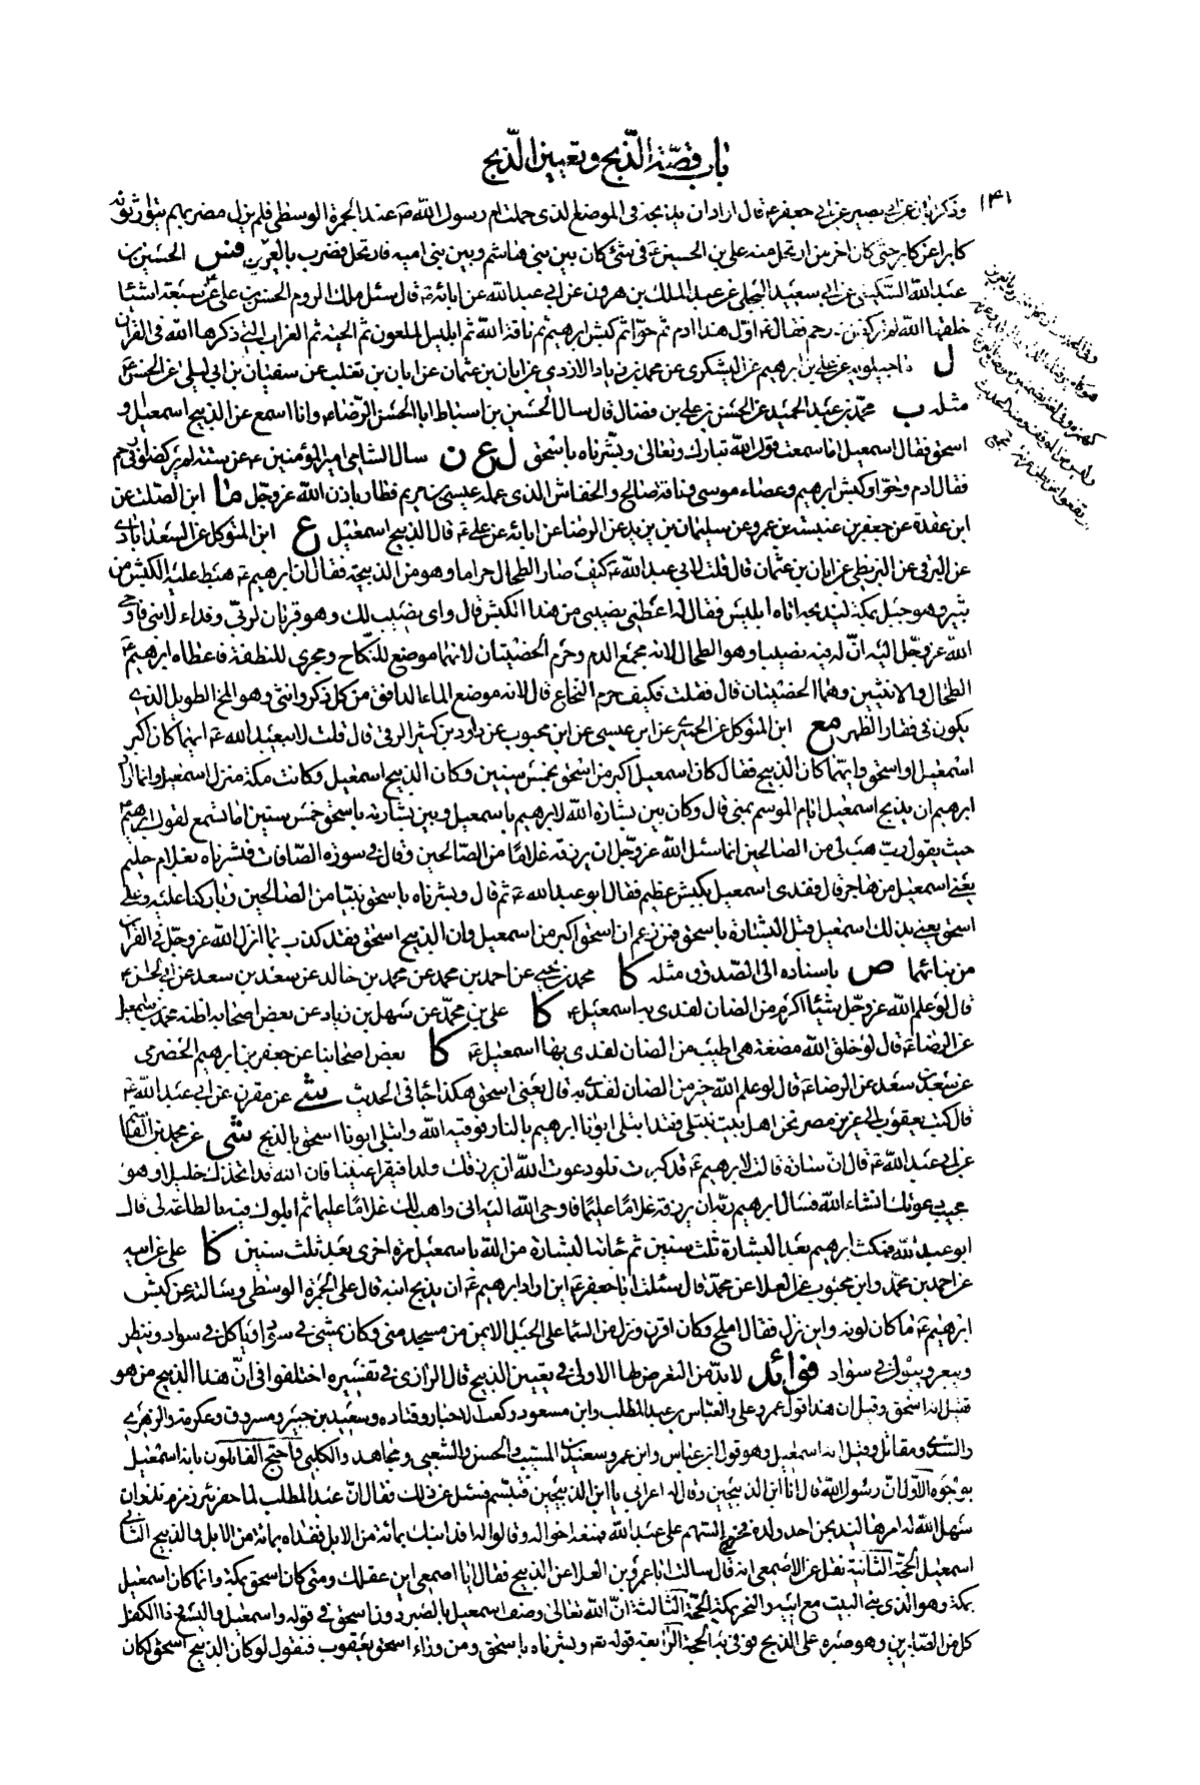 باب قصّة الذّبح وتعيين الذّبيح
١٤١
وذكر ابان عن ابي بصير عن ابي جعفر ع قال اراد ان يذبحه في الموضع الذي حملت ام رسول الله ص عند الجمرة الوسطى فلم يزل مضربهم يتوارثونه
كابرا عن كابر حتى كان اخر من ارتحل منه علي بن الحسين ع في شئ كان بين بني هاشم وبين بني امية فارتحل فضرب بالعرين فس الحسين بن
عبد الله السكيني عن ابي سعيد البجلي عن عبد الملك بن هرون عن ابي عبد الله عن ابائه ع قال سئل ملك الروم الحسن بن علي ع عن سبعة اشياء
خلقها الله لم تركض في رحم فقال ع اوّل هذا ادم ثم حوّا ثم كبش ابرهيم ثم ناقة الله ثم ابليس الملعون ثم الحية ثم الغراب التي ذكرها الله في القران
ل ماجيلويه عن علي بن ابرهيم عن اليشكري عن محمد بن زياد الازدي عن ابان بن عثمان عن ابان بن تغلب عن سفيان بن ابي ليلى عن الحسن ع
مثله ب محمد بن عبد الحميد عن الحسن بن علي بن فضال قال سال الحسين بن اسباط ابا الحسن الرضا ع وانا اسمع عن الذبيح اسمعيل او
اسحق فقال اسمعيل اما سمعت قول الله تبارك وتعالى وبشرناه باسحق ل ع ن سال الشامي امير المؤمنين ع عن ستة لم يركضوا في رحم
فقال ادم وحوا وكبش ابرهيم وعصاء موسى وناقة صالح والخفاش الذي عمله عيسى بن مريم فطار باذن الله عز وجل ما ابن الصلت عن
ابن عقدة عن جعفر بن عنبسة بن عمرو عن سليمان بن يزيد عن الرضا عن ابائه عن علي ع قال الذبيح اسمعيل ع ابن المتوكل عن السعدابادي
عن البرقي عن البزنطي عن ابان بن عثمان قال قلت لابي عبد الله ع كيف صار الطحال حراما وهو من الذبيحة فقال ان ابرهيم ع هبط عليه الكبش من
ثبير وهو جبل بمكة ليذبحه اتاه ابليس فقال له اعطني نصيبي من هذا الكبش قال واي نصيب لك وهو قربان لربّي وفداء لابني فاوحى
الله عز وجل اليه انّ له فيه نصيبا وهو الطحال لانه مجمع الدم وحرم الخصيتان لانهما موضع للنكاح ومجرى للنطفة فاعطاه ابرهيم ع
الطحال والانثيين وهما الخصيتان قال فقلت فكيف حرم النخاع قال لانه موضع الماء الدافق من كل ذكر وانثى وهو المخ الطويل الذي
يكون في فقار الظهر مع ابن المتوكل عن الحميري عن ابن عيسى عن ابن محبوب عن داود بن كثير الرقي قال قلت لابي عبد الله ع ايهما كان اكبر
اسمعيل او اسحق وايهما كان الذبيح فقال كان اسمعيل اكبر من اسحق بخمس سنين وكان الذبيح اسمعيل وكانت مكة منزل اسمعيل وانما اراد
ابرهيم ان يذبح اسمعيل ايام الموسم بمنى قال وكان بين بشارة الله لابرهيم باسمعيل وبين بشارته باسحق خمس سنين اما تسمع لقول ابرهيم ع
حيث يقول رب هب لي من الصالحين انما سئل الله عز وجل ان يرزقه غلامًا من الصّالحين وقال في سورة الصّافات فبشرناه بغلام حليم
يعني اسمعيل من هاجر قال ففدى اسمعيل بكبش عظيم فقال ابو عبد الله ع ثم قال وبشرناه باسحق نبيّا من الصالحين وباركنا عليه وعلى
اسحق يعني بذلك اسمعيل قبل البشارة باسحق فمن زعم ان اسحق اكبر من اسمعيل وان الذبيح اسحق فقد كذب بما انزل الله عز وجل في القران
من نبائهما ص باسناده الى الصدوق مثله كا محمد بن يحيى عن احمد بن محمد عن محمد بن خالد عن سعد بن سعد عن ابي الحسن ع
قال لو علم الله عز وجل شيئا اكرم من الضان لفدى به اسمعيل ع كا علي بن محمد عن سهل بن زياد عن بعض اصحابه اظنه محمد بن اسمعيل
عن الرضا ع قال لو خلق الله مضغة هي اطيب من الضان لفدى بها اسمعيل ع كا بعض اصحابنا عن جعفر بن ابرهيم الحضرمي
عن سعد بن سعد عن الرضا ع قال لو علم الله خير من الضان لفدى به قال يعني اسحق هكذا جا في الحديث شي عن مقرن عن ابي عبد الله ع
قال كتب يعقوب الى عزيز مصر نحن اهل بيت نبتلى فقد ابتلى ابونا ابرهيم بالنار فوقيه الله وابتلى ابونا اسحق بالذبح شي عن محمد بن القاسم
عن ابي عبد الله ع قال ان سارة قالت لابرهيم ع قد كبرت فلو دعوت الله ان يرزقك ولدا فيقر اعيننا فان الله قد اتخذك خليلا وهو
مجيب دعوتك انشاء الله فسال ابرهيم ربه ان يرزقه غلامًا عليمًا فاوحى الله اليه اني واهب لك غلامًا عليما ثم ابلوك فيه بالطاعة لي قال
ابو عبد الله فمكث ابرهيم بعد البشارة ثلث سنين ثم جائنا البشارة من الله باسمعيل مرة اخرى بعد ثلث سنين كا علي عن ابيه
عن احمد بن محمد وابن محبوب عن العلا عن محمد قال سئلت ابا جعفر ع اين اراد ابرهيم ع ان يذبح ابنه قال على الجمرة الوسطى وسالته عن كبش
ابرهيم ع ما كان لونه واين نزل فقال املح وكان اقرن ونزل من السما على الجبل الايمن من مسجد منى وكان يمشي في سواد وياكل في سواد وينظر
ويبعر ويبول في سواد فوائد لا بدّ من التعرض لها الاولى في تعيين الذبيح قال الرازي في تفسيره اختلفوا في انّ هذا الذبيح من هو
فقيل انه اسحق وقيل ان هذا قول عمر وعلي والعباس بن عبد المطلب وابن مسعود وكعب الاحبار وقتاده وسعيد بن جبير ومسروق وعكرمة والزهري
والسّدي ومقاتل وقيل انه اسمعيل وهو قول ابن عباس وابن عمر وسعيد بن المسيب والحسن والشعبي ومجاهد والكلبي واحتج القائلون بانه اسمعيل
بوجوه الاوّل انّ رسول الله قال انا ابن الذبيحين وقال له اعرابي يا ابن الذبيحين فتبسم فسئل عن ذلك فقال انّ عبد المطلب لما حفر بئر زمزم نذر ان
سهل الله له امرها ليذبحن احد ولده فخرج السّهم على عبد الله فمنعه اخواله وقالوا له افد ابنك بمائة من الابل ففداه بمائة من الابل والذبيح الثاني
اسمعيل الحجّة الثانية نقل عن الاصمعي انه قال سالت ابا عمرو بن العلا عن الذبيح فقال يا اصمعي اين عقلك ومتى كان اسحق بمكة وانما كان اسمعيل
بمكة وهو الذي بنى البيت مع ابيه والنحر بمكة الحجّة الثالثة انّ الله تعالى وصف اسمعيل بالصبر دون اسحق في قوله واسمعيل واليسع وذا الكفل
كل من الصّابرين وهو صبره على الذبح فوفى به الحجة الرّابعة قوله تع وبشرناه باسحق ومن وراء اسحق يعقوب فنقول لو كان الذبيح اسحق لكان